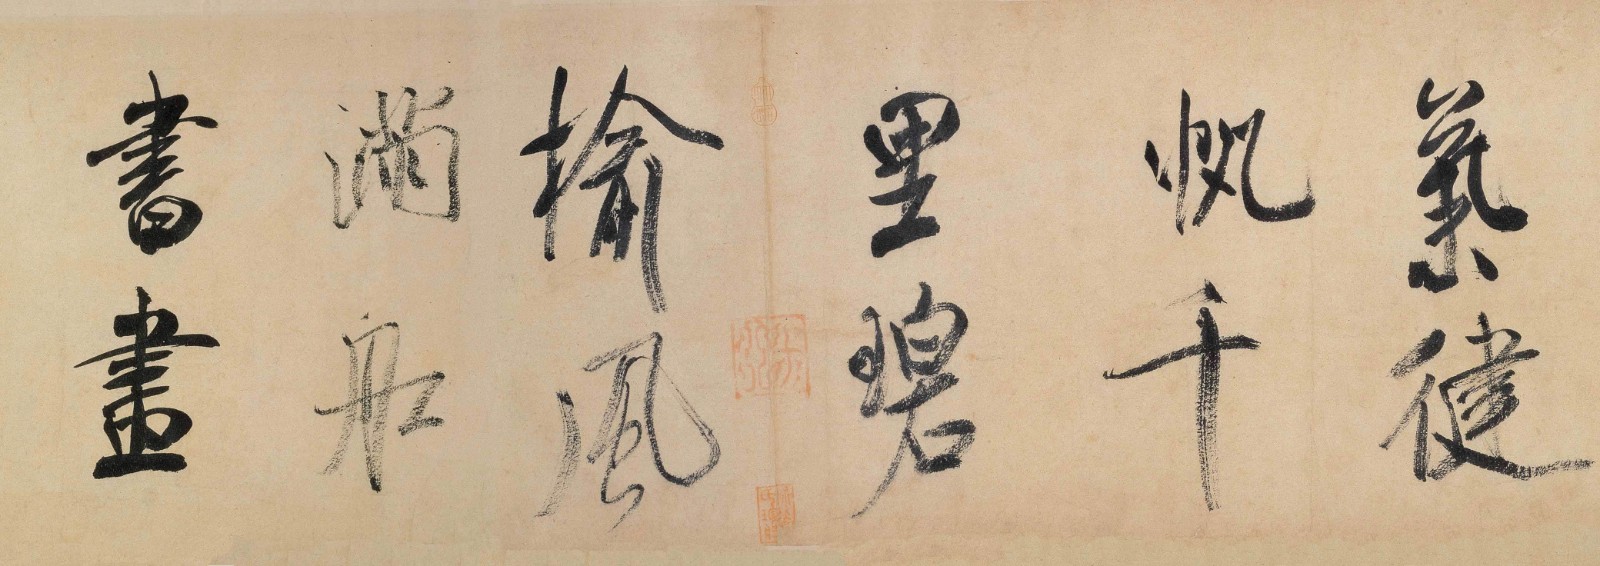 氣健
帆千
里碧
榆風
滿船
書畫